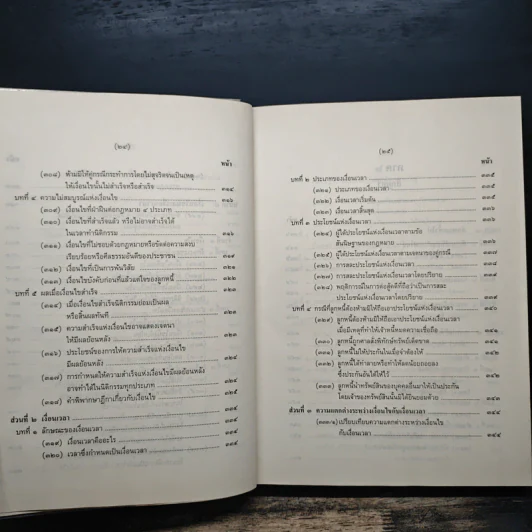 (๒๔)
หน้า
(๓๐๘) ห้ามมิให้คู่กรณีกระทำการโดยไม่สุจริตจนเป็นเหตุ
ให้เงื่อนไขนั้นไม่สำเร็จหรือสำเร็จ
บทที่ ๔ ความไม่สมบูรณ์แห่งเงื่อนไข
(๓๐๙) เงื่อนไขที่ฝ่าฝืนต่อกฎหมาย ๔ ประเภท
(๓๑๐) เงื่อนไขที่สำเร็จแล้ว หรือไม่อาจสำเร็จได้
ในเวลาทำนิติกรรม
(๓๑๑) เงื่อนไขที่ไม่ชอบด้วยกฎหมายหรือขัดต่อความสงบ
เรียบร้อยหรือศีลธรรมอันดีของประชาชน
(๓๑๒) เงื่อนไขที่เป็นการพ้นวิสัย
(๓๑๓) เงื่อนไขบังคับก่อนที่แล้วแต่ใจของลูกหนี้
บทที่ ๕ ผลเมื่อเงื่อนไขสำเร็จ
(๓๑๔) เมื่อเงื่อนไขสำเร็จนิติกรรมย่อมเป็นผล
หรือสิ้นผลทันที
(๓๑๕) ความสำเร็จแห่งเงื่อนไขอาจแสดงเจตนา
ให้มีผลย้อนหลัง
(๓๑๖) ประโยชน์ของการให้ความสำเร็จแห่งเงื่อนไข
มีผลย้อนหลัง
(๓๑๗) การกำหนดให้ความสำเร็จแห่งเงื่อนไขมีผลย้อนหลัง
อาจทำได้ในนิติกรรมทุกประเภท
(๓๑๘) คำพิพากษาฎีกาเกี่ยวกับเงื่อนไข
ส่วนที่ ๒ เงื่อนเวลา
บทที่ ๑ ลักษณะของเงื่อนเวลา
(๓๑๙) เงื่อนเวลาคืออะไร
(๓๒๐) เวลาซึ่งกำหนดเป็นเงื่อนเวลา
(๒๕)
หน้า
บทที่ ๒ ประเภทของเงื่อนเวลา ๓๓๕
(๓๒๑) ประเภทของเงื่อนเวลา ๓๓๕
(๓๒๒) เงื่อนเวลาเริ่มต้น
(๓๒๓) เงื่อนเวลาสิ้นสุด
บทที่ ๓ ประโยชน์แห่งเงื่อนเวลา
(๓๒๔) ผู้ได้ประโยชน์แห่งเงื่อนเวลาตามข้อ
สันนิษฐานของกฎหมาย
(๓๒๕) ผู้ได้ประโยชน์แห่งเงื่อนเวลาตามเจตนาของคู่กรณี
(๓๒๖) การสละประโยชน์แห่งเงื่อนเวลา
(๓๒๗) การสละประโยชน์แห่งเงื่อนเวลาโดยปริยาย
(๓๒๘) พฤติการณ์ในการส่งสู้คดีที่ถือว่าเป็นการสละ
ประโยชน์แห่งเงื่อนเวลาโดยปริยาย
บทที่ ๔ กรณีที่ลูกหนี้ต้องห้ามมิให้ถือเอาประโยชน์แห่งเงื่อนเวลา
(๓๒๙) ลูกหนี้ต้องห้ามมิให้ถือเอาประโยชน์แห่งเงื่อนเวลา
เมื่อมีเหตุที่ทำให้เจ้าหนี้หมดความเชื่อถือ
(๓๓๐) ลูกหนี้ถูกศาลสั่งพิทักษ์ทรัพย์เด็ดขาด
(๓๓๑) ลูกหนี้ไม่ให้ประกันในเมื่อจำต้องให้
(๓๓๒) ลูกหนี้ได้ทำลายหรือทำให้ลดน้อยถอยลง
ซึ่งประกันอันได้ให้ไว้
(๓๓๓) ลูกหนี้นำทรัพย์สินของบุคคลอื่นมาให้เป็นประกัน
โดยเจ้าของทรัพย์สินนั้นมิได้ยินยอมด้วย
ส่วนที่ ๓ ความแตกต่างระหว่างเงื่อนไขกับเงื่อนเวลา
(๓๓๓/๑) เปรียบเทียบความแตกต่างระหว่างเงื่อนไข
กับเงื่อนเวลา